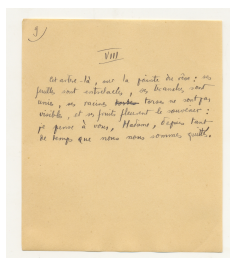 9
VIII
Cet arbre-là, sur la pointe du rêve : ses
feuilles sont entendues, ses branches sont
amis, ses racines ne sont pas
visibles, et ses fruits fleurent le souvenir :
je pense à vous, Madame, depuis tant
de temps que nous nous sommes quittés.